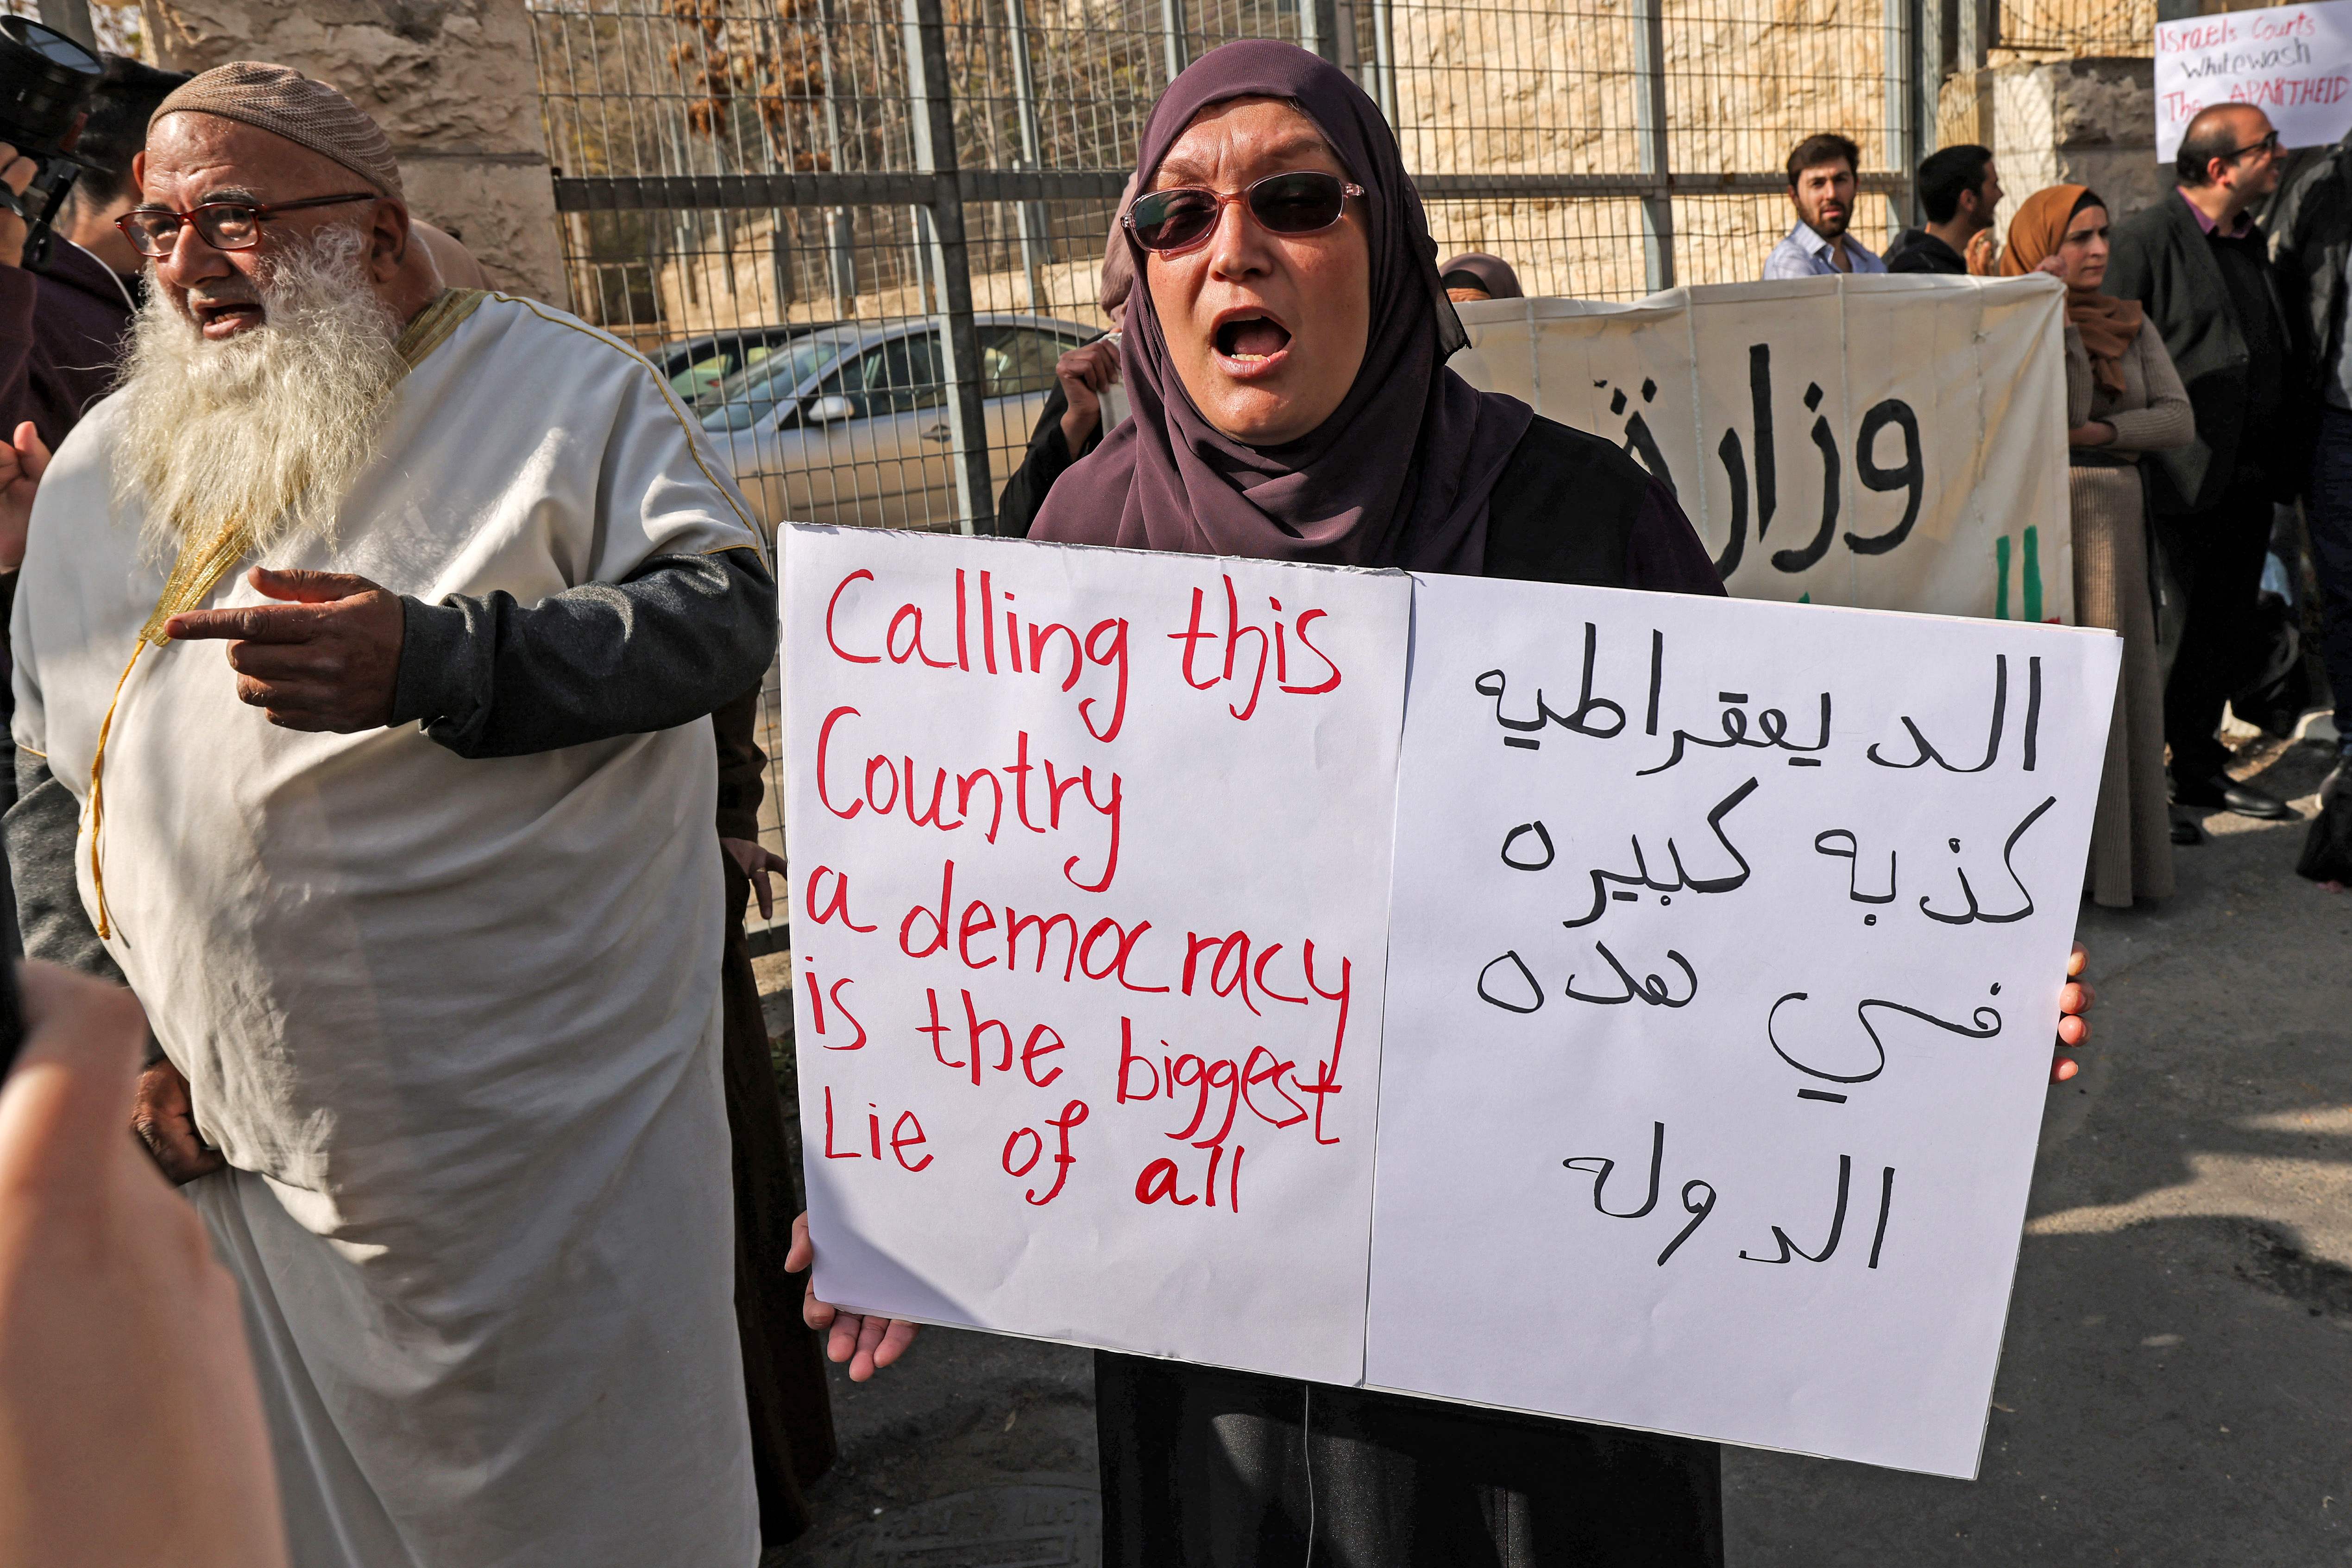 Calling this
Country
a democracy
is the biggest
Lie of all
الديمقراطيه
كذبه كبيره
في هذه
الدوله
وزارة
Israels Courts
Whitewash
The APARTHEID